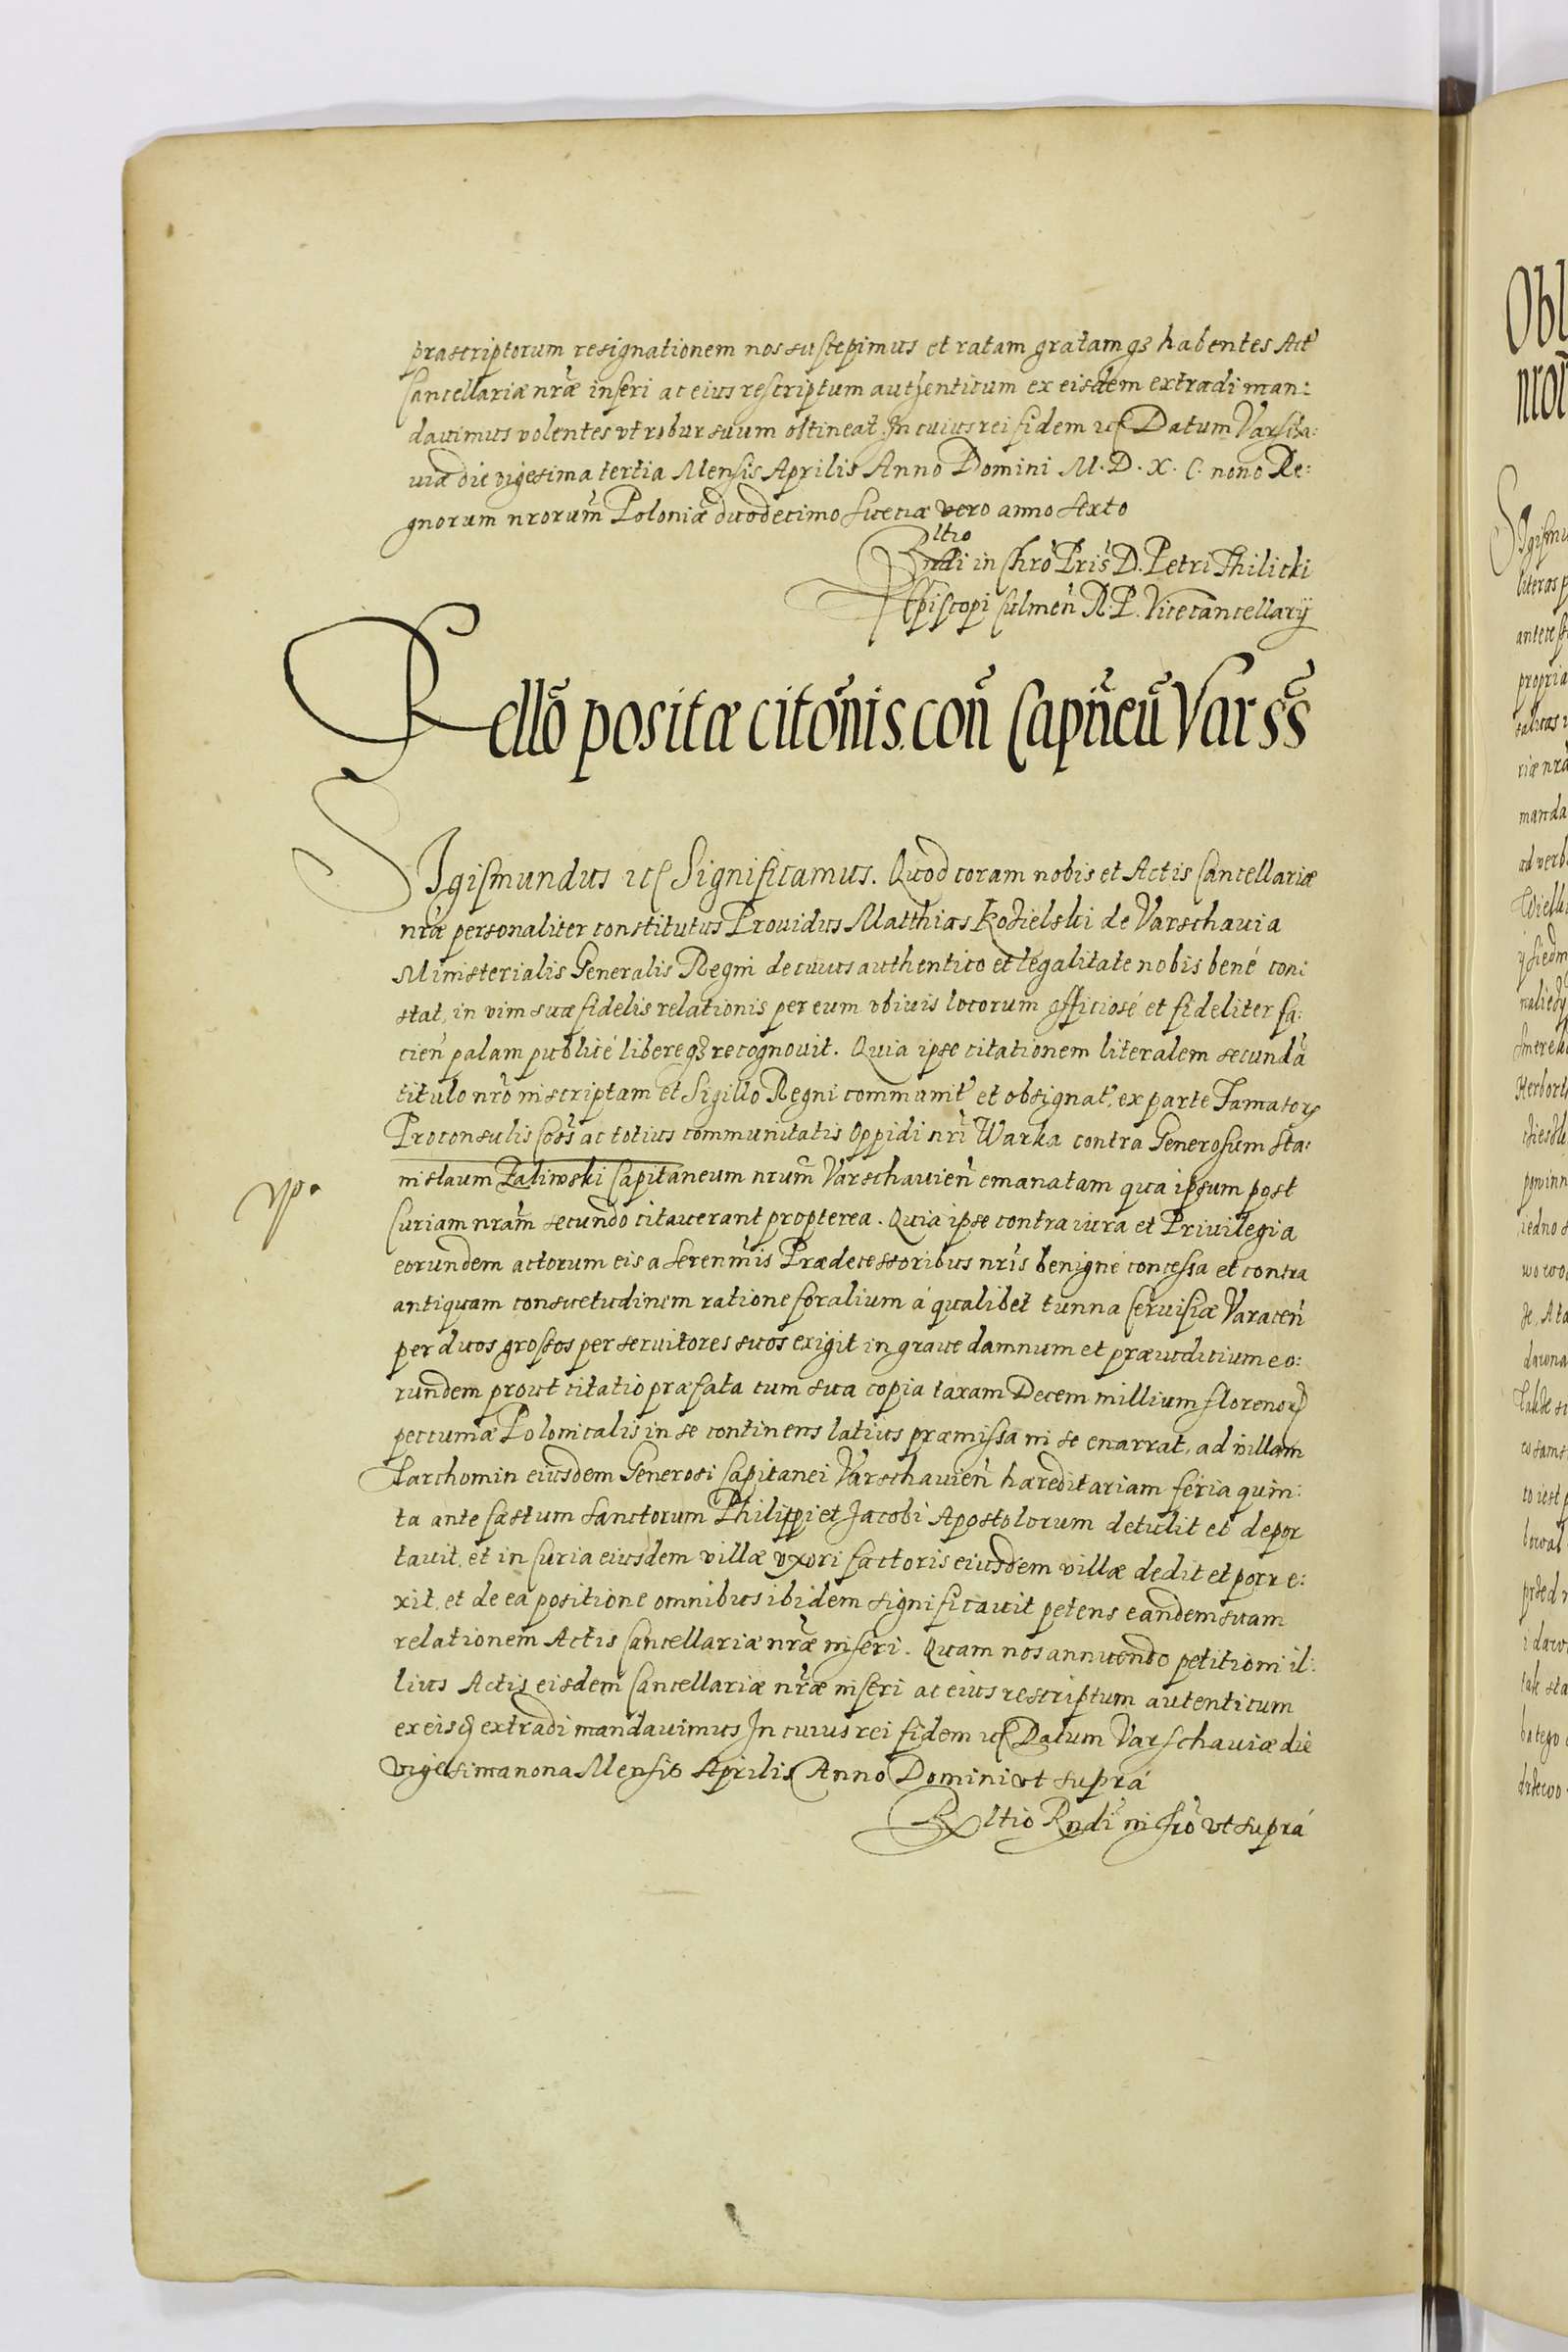 præscriptorum resignationem nos suscepimus et ratam gratamq3 habentes Act'
Cancellariæ nrãe inseri ac eius rescriptum authenticum ex eisdem extradi man:
dauimus volentes vt robur suum obtineat. In cuius rei fidem etc Datum Varscha:
uiæ die vigesima tertia Mensis Aprilis Anno Domini M.D.X.C. nono Re:
gnorum nrorum̃ Poloniæ duodecimo Sueciæ vero anno sexto
Rltio
Rndi in Chrõ Pris̃ D. Petri Thilicki
Episcopi Culmen̄ R.P. Vicecancellarij
Rellõ positæ citõnis con̄ Capn̄eū Varss̄
SIgismundus etc Significamus. Quod coram nobis et Actis Cancellariæ
nrãe personaliter constitutus Prouidus Matthias Kozielski de Varschauia
Ministerialis Generalis Regni de cuius authentico et legalitate nobis bené con:
stat, in vim suæ fidelis relationis per eum vbiuis locorum officiosé et fideliter fa:
cien̄ palam publicé libereq3 recognouit. Quia ipse citationem literalem secundã
titulo nrõ inscriptam et Sigillo Regni communit' et obsignat', ex parte Famator
Proconsulis Coss̄ ac totius communitatis Oppidi nrĩ Warka contra Generosum Sta:
nislaum Zaliwski Capitaneum nrum̃ Varschauien̄ emanatam qua ipsum post
Curiam nram̃ secundo citauerant propterea. Quia ipse contra iura et Priuilegia
eorundem actorum eis a Serenm̃is Prædecessoribus nrĩs benigné concessa et contra
antiquam consuetudinem ratione foralium á qualibet tunna Ceruisiæ Varacen̄
per duos grossos per seruitores suos exigit in graue damnum et præiudicium eo:
rundem prout citatio præfata cum sua copia taxam Decem millium florenor
pecuniæ Polonicalis in se continens latius præmissa in se enarrat, ad villam
Tarchomin eiusdem Generosi Capitanei Varschauien̄ hæreditariam feria quin:
ta ante fæstum Sanctorum Philippi et Jacobi Apostolorum detulit et depor
tauit, et in Curia eiusdem villæ vxori factoris eiusdem villæ dedit et porre:
xit, et de ea positione omnibus ibidem significauit petens eandem suam
relationem Actis Cancellariæ nrãe inseri. Quam nos annuendo petitioni il:
lius Actis eisdem Cancellariæ nrãe inseri ac eius rescriptum autenticum
ex eisd extradi mandauimus In cuius rei fidem etc Datum Varschauiæ die
vigesima nona Mensis Aprilis Anno Domini vt suprá
Rltio Rndi in Chrõ vt suprá